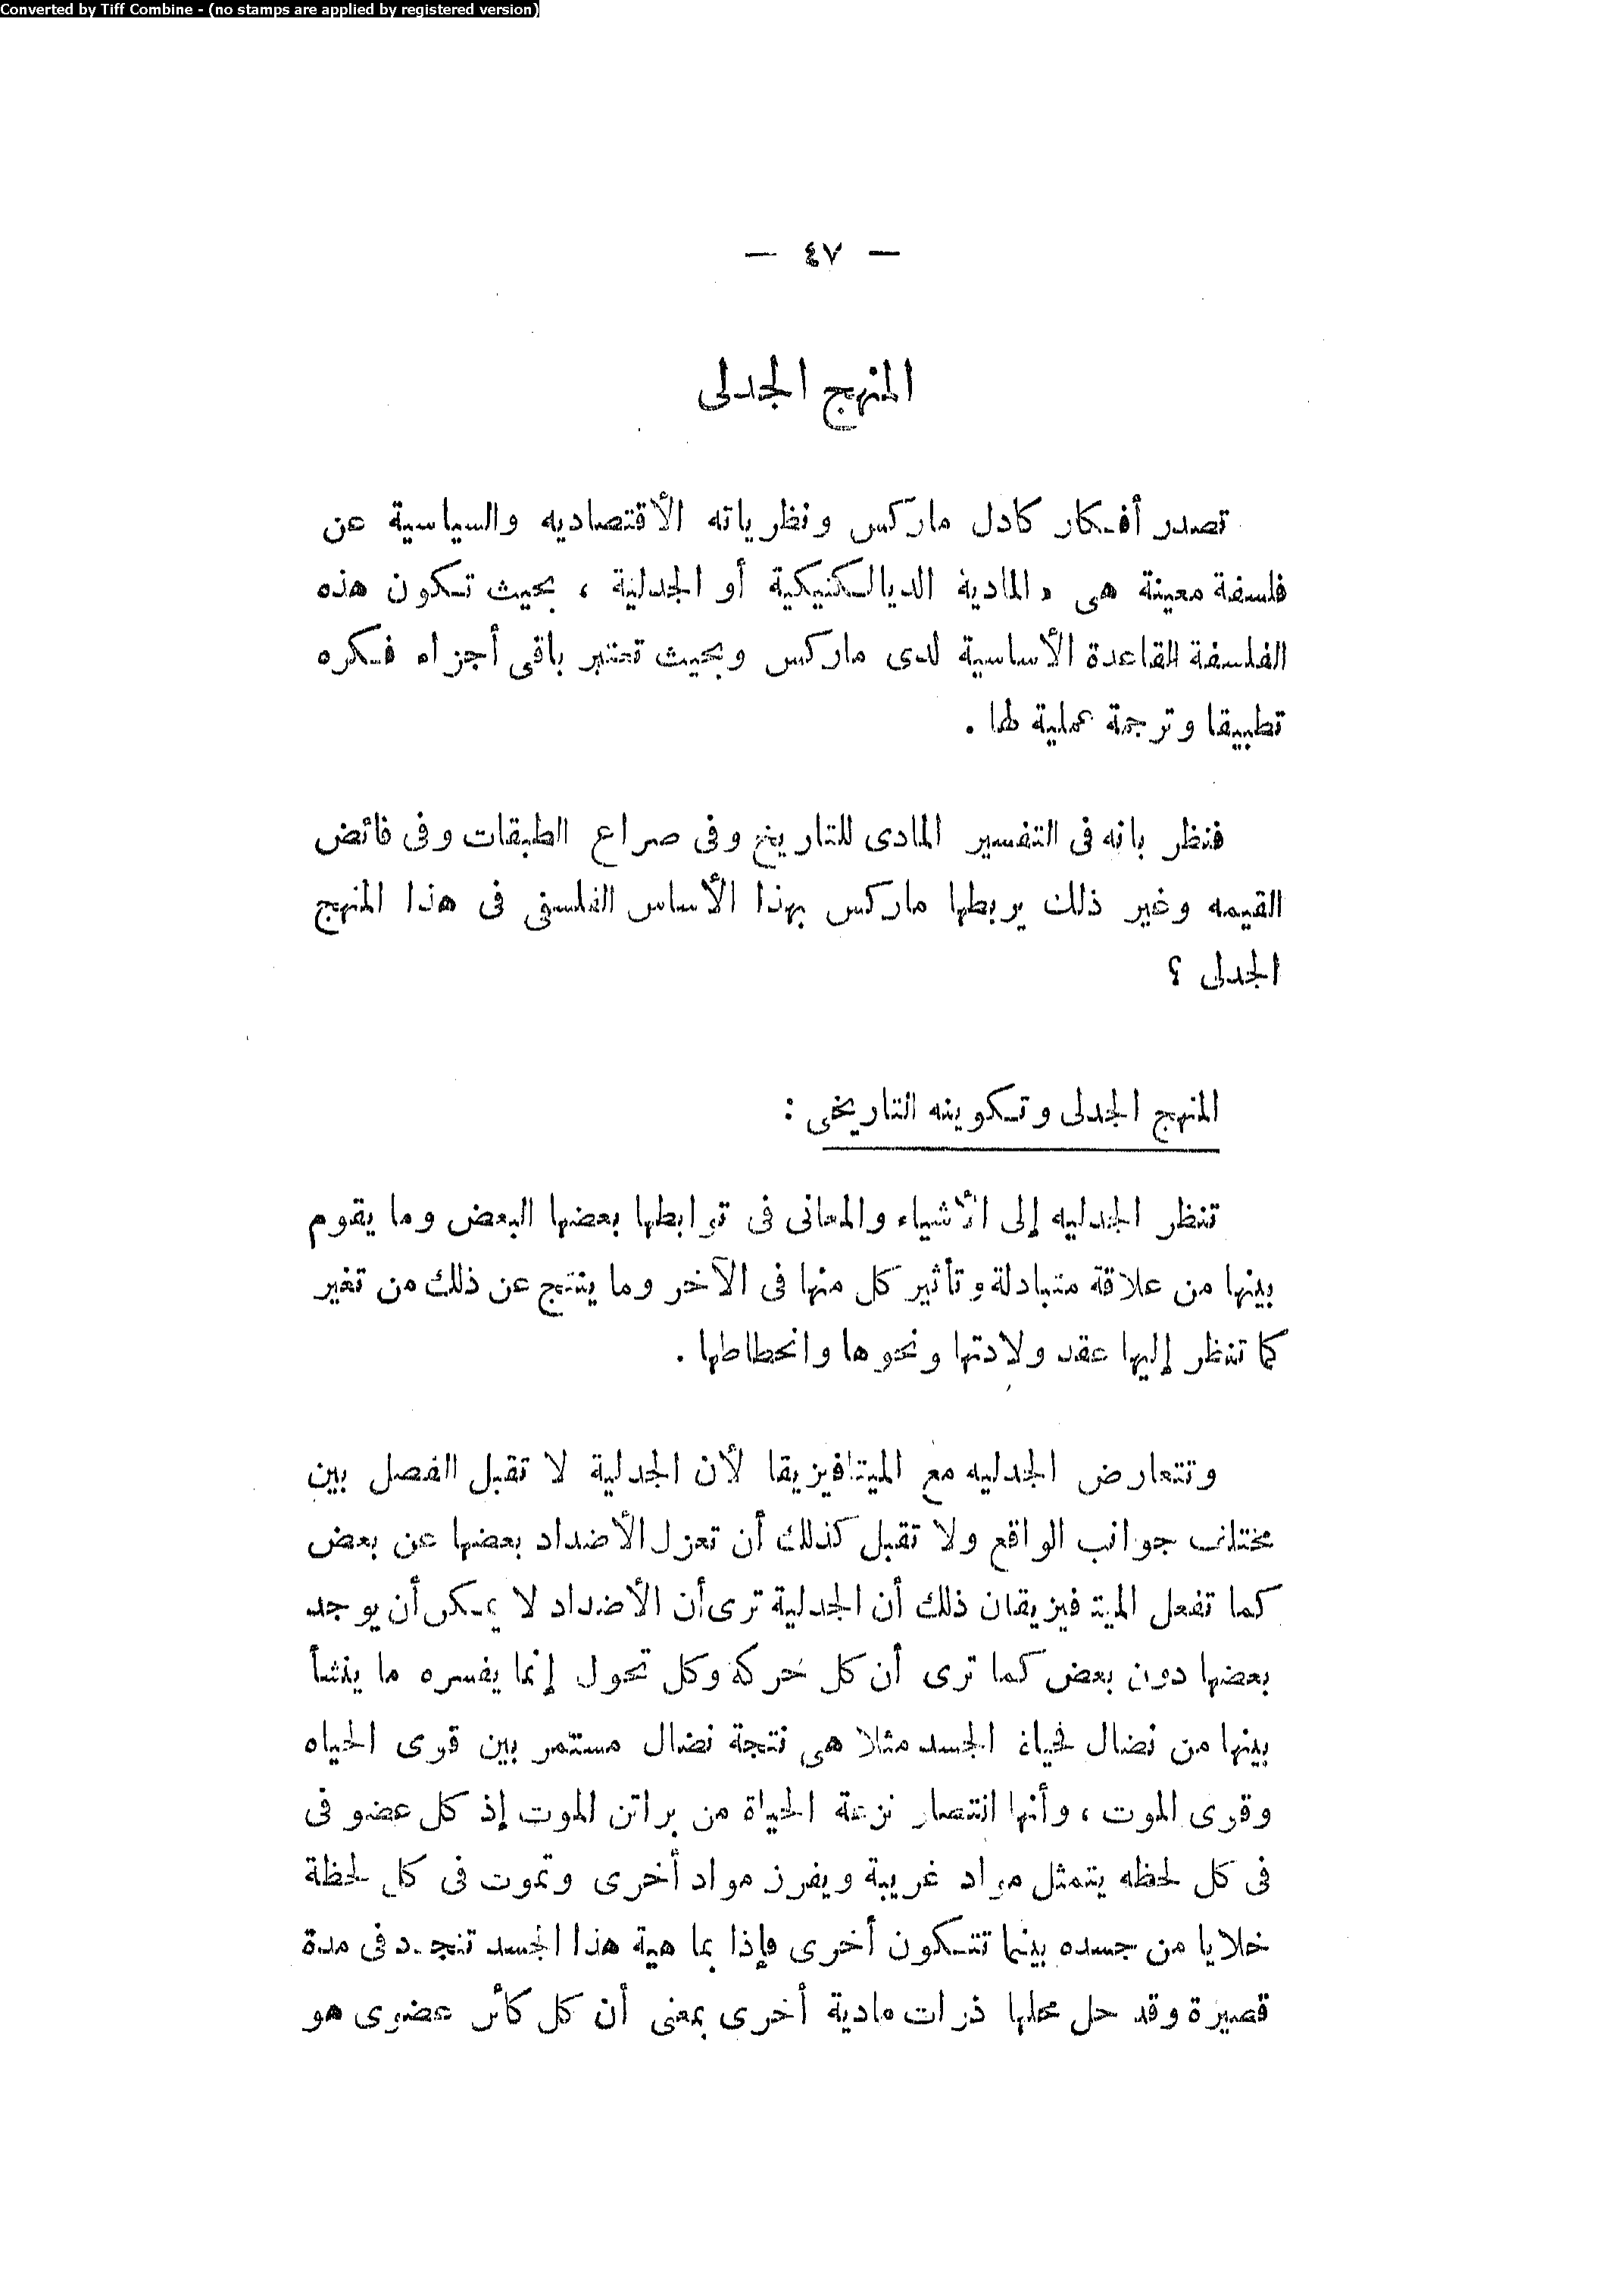 Converted by Tiff Combine - (no stamps are applied by registered version)
— ٤٧ —
المنهج الجدلى
تصدر أفكار كادل ماركس ونظرياته الأقتصاديه والسياسية عن
فلسفة معينة هى « المادية الديالكنيكية أو الجدلية ، بحيث تكون هذه
الفلسفة القاعدة الأساسية لدى ماركس وبحيث تعتبر باقى أجزاء فكره
تطبيقا وترجمة عملية لها .
فنظر يانه فى التفسير المادى للتاريخ وفى صراع الطبقات وفى فائض
القيمه وغير ذلك يربطها ماركس بهذا الأساس الفلسفى فى هذا المنهج
الجدلى ؟
المنهج الجدلى وتكوينه التاريخى :
تنظر الجدليه إلى الأشياء والمعانى فى ترابطها بعضها البعض وما يقوم
بينها من علاقة متبادلة وتأثير كل منها فى الآخر وما ينتج عن ذلك من تغير
كما تنظر إليها عقد ولادتها ونحوها وانحطاطها .
وتتعارض الجدليه مع الميتافيزيقا لأن الجدلية لا تقبل الفصل بين
مختلف جوانب الواقع ولا تقبل كذلك أن تعزل الأضداد بعضها عن بعض
كما تفعل الميتافيزيقان ذلك أن الجدلية ترى أن الأضداد لا يمكن أن يوجد
بعضها دون بعض كما ترى أن كل حركة وكل تحول إنما يفسره ما ينشأ
بينها من نضال فحياة الجسد مثلا هى نتجة نضال مستمر بين قوى الحياه
وقوى الموت ، وأنها انتصار نزعة الحياة من براتن الموت إذ كل عضو فى
فى كل لحظه يتمثل مواد غريبة ويفرز مواد أخرى وتموت فى كل لحظة
خلايا من جسده بينما تتكون أخرى فإذا بما هية هذا الجسد تنجدد فى مدة
قصيرة وقد حل محلها ذرات مادية أخرى بمعنى أن كل كائن عضوى هو